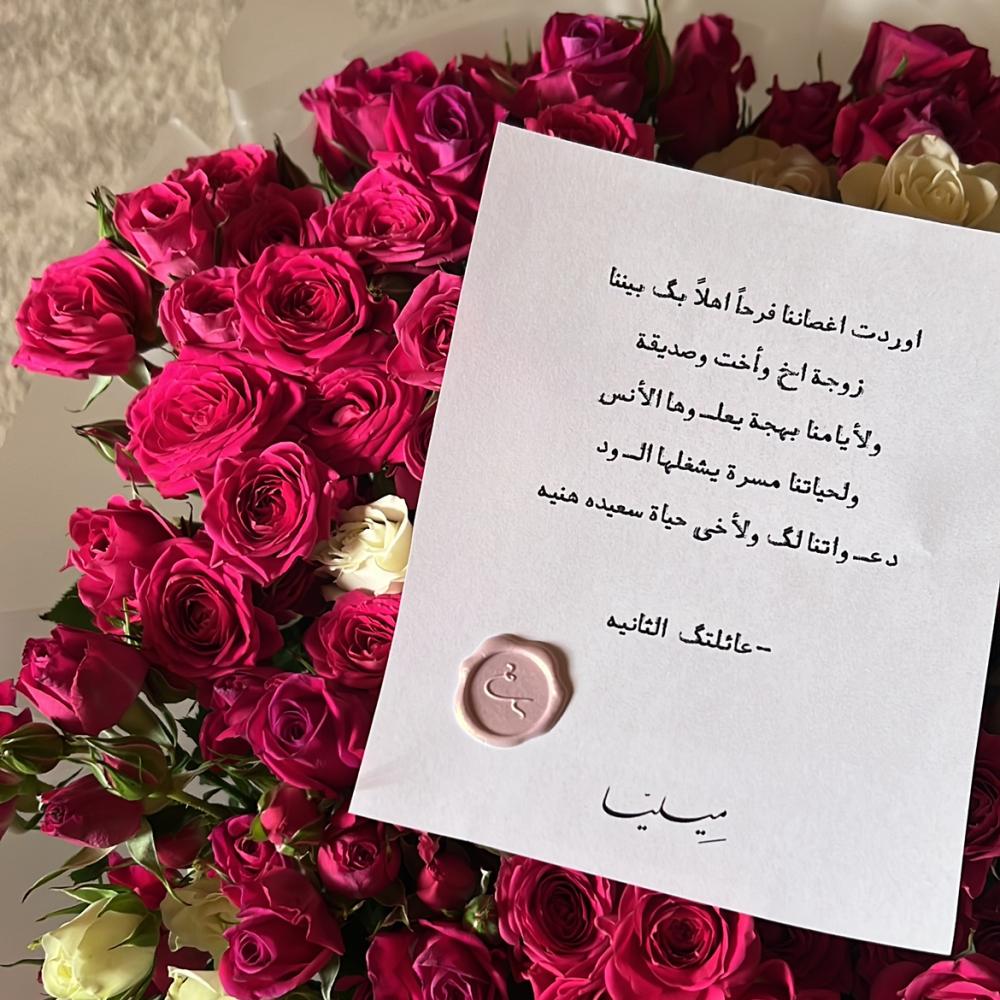 اوردت اغصاننا فرحاً اهلاً بگ بيننا
زوجة اخ وأخت وصديقة
ولأيامنا بهجة يعلــوها الأنس
ولحياتنا مسرة يشغلها الــود
دعــواتنا لگ ولأخي حياة سعيده هنيه
-عائلتگ الثانيه
ميليا